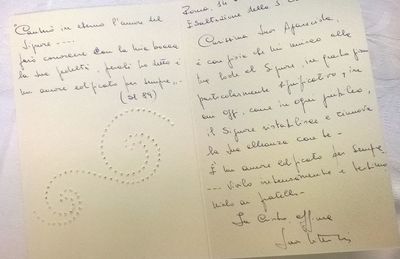 "Canterò in eterno l'amore del
Signore ....
farò conoscere con la mia bocca
la sua fedeltà, perché ho detto: è
un amore edificato per sempre...."
(sl 89)
Roma, 14
Esaltazione della S.
Carissima Suor Aparecida,
è con gioia che mi unisco alla
tua lode al Signore, in questo giorno
particolarmente significativo, in
cui, come in ogni giubileo,
il Signore ristabilisce e rinnova
la sua alleanza con te.
È un amore edificato per sempre
.... vivilo intensamente e testimo
nialo ai fratelli.
In Cristo, aff.ma
Suor